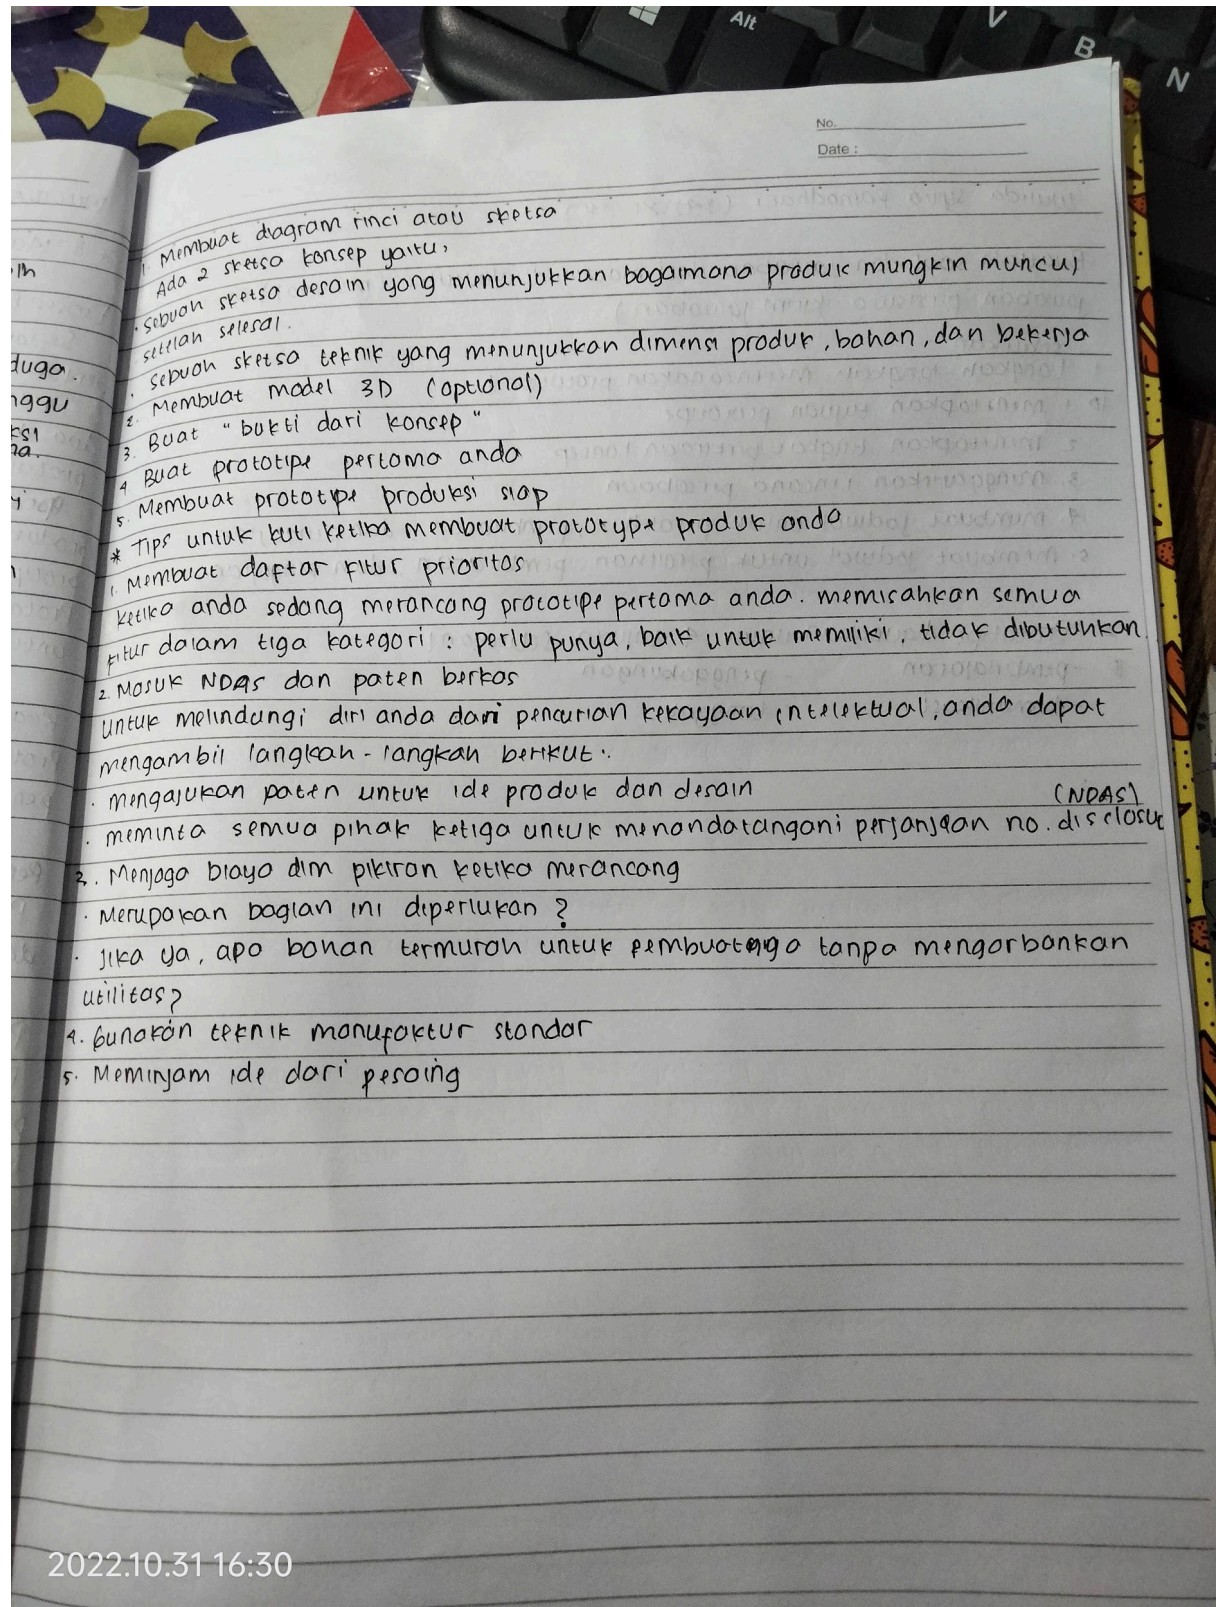 Alt
V
B
N
No.
Date :
1. Membuat diagram rinci atau sketsa
Ada 2 sketsa konsep yaitu,
. Sebuah sketsa desain yang menunjukkan bagaimana produk mungkin muncul
setelah selesai.
. Sebuah sketsa teknik yang menunjukkan dimensi produk, bahan, dan bekerja
2. Membuat model 3D (optional)
3. Buat "bukti dari konsep"
4 Buat prototipe pertama anda
5. Membuat prototipe produksi siap
* Tips untuk kuti ketika membuat prototype produk anda
1. Membuat daftar fitur prioritas
ketika anda sedang merancang prototipe pertama anda. memisahkan semua
fitur dalam tiga kategori : perlu punya, baik untuk memiliki, tidak dibutuhkan.
2. Masuk NDAS dan paten berkas
untuk melindungi diri anda dari pencurian kekayaan intelektual, anda dapat
mengambil langkah-langkah berikut :
. mengajukan paten untuk ide produk dan desain
(NDAS)
. meminta semua pihak ketiga untuk menandatangani perjanjian no. disclosue
3. Menjaga biaya dlm pikiran ketika merancang
. Merupakan bagian ini diperlukan ?
. Jika ya, apa bahan termurah untuk tanpa mengorbankan
utilitas?
4. Gunakan teknik manufaktur standar
5. Meminjam ide dari pesaing
lh
duga.
nggu
ksi
na.
2022.10.31 16:30